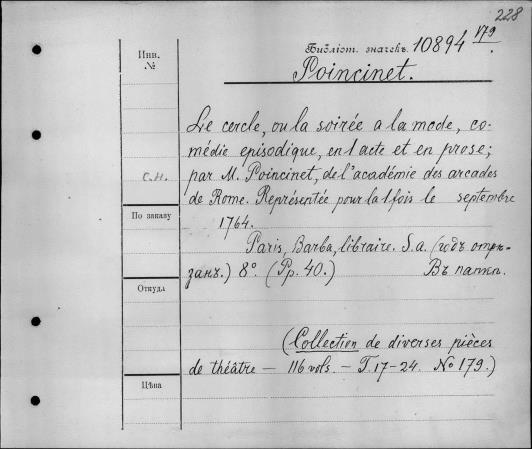 228
Инв.
№
Библіот. значекъ. 10894 V79.
Poincinet.
Le cercle, ou la soirée a la mode, co-
médie episodique, en 1 acte et en prose;
с.н. par M. Poincinet, de l'académie des arcades
de Rome. Représentée pour la 1 fois le septembre
По заказу 1764.
Paris, Barba, libraire. S.a. (годъ отрѣ-
занъ.) 8º. (Pp. 40.) Въ папк.
Откуда
(Collection de diverses pièces
de théâtre — 116 vols. — T. 17-24. No 179.)
Цѣна